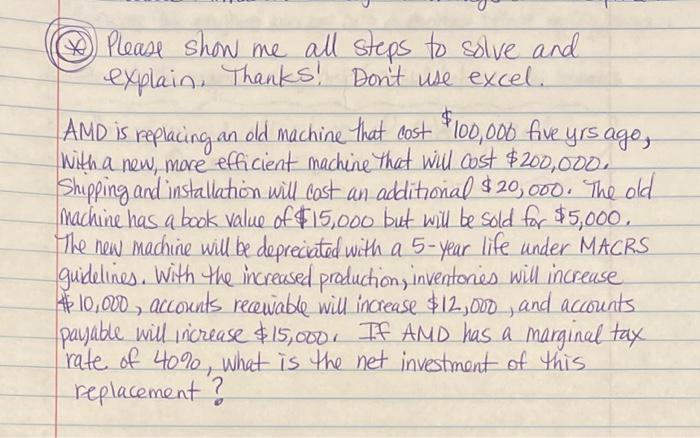 Please show me all steps to solve and
explain. Thanks! Don't use excel.
AMD is replacing an old machine that cost $100,000 five yrs ago,
with a new, more efficient machine that will cost $200,000.
Shipping and installation will cost an additional $20,000. The old
machine has a book value of $15,000 but will be sold for $5,000.
The new machine will be depreciated with a 5-year life under MACRS
guidelines. With the increased production, inventories will increase
$10,000, accounts receivable will increase $12,000, and accounts
payable will increase $15,000. If AMD has a marginal tax
rate of 40%, what is the net investment of this
replacement?